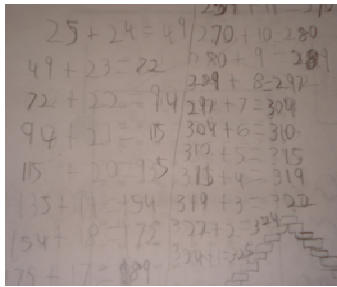 25 + 24 = 49
49 + 23 = 72
72 + 22 = 94
94 + 21 = 115
115 + 20 = 135
135 + 19 = 154
154 + 18 = 172
+ 17 = 189
270 + 10 = 280
280 + 9 = 289
289 + 8 = 297
297 + 7 = 304
304 + 6 = 310
310 + 5 = 315
315 + 4 = 319
319 + 3 = 322
322 + 2 = 324
324 + 1 = 325